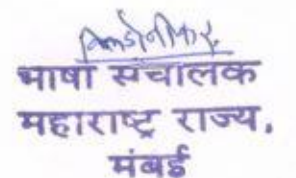 भाषा संचालक
महाराष्ट्र राज्य,
मंबई